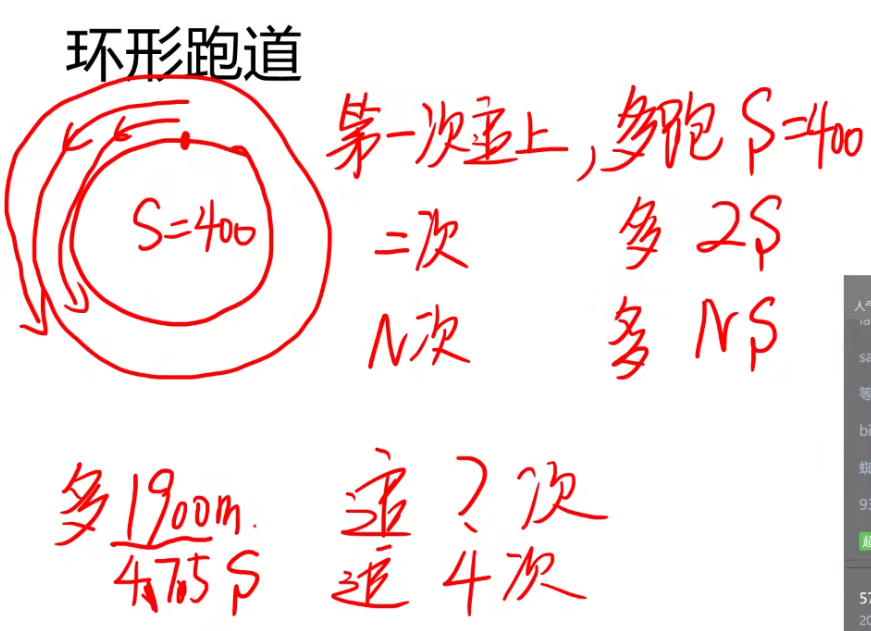 环形跑道
第一次追上，多跑 S=400
S=400
二次 多 2S
N次 多 NS
多 1900m. 追 ? 次
4.75S 追 4 次
人气
sa
等
bi
蜘
93
57
20